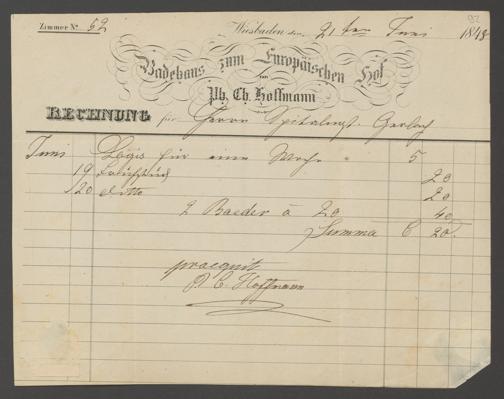 Zimmer No. 52
Wiesbaden den 21ten Juni 1848
Badehaus zum Europäischen Hof
von
Ph. Ch. Hoffmann
RECHNUNG für Herrn Gerlach
Juni Logis für eine Woche " 5
19 Frühstück 20
20 ditto 20
2 Baeder á 20 40
Summa 6 20
P. C. Hoffmann